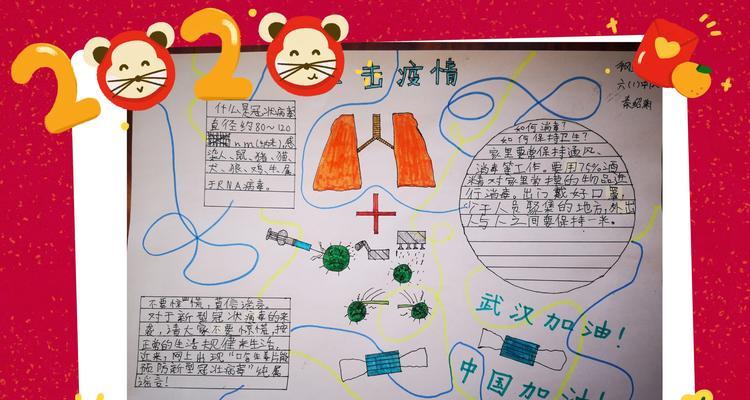 2020
击疫情
六(1)中队
什么是冠状病毒
直径约80~120
nm(纳米),感
染人、鼠、猪、猫、
犬、狼、鸡、牛、属
于RNA病毒。
如何消毒?
如何保持卫生?
家里要要保持通风、
消毒等工作。要用75%酒
精对家里常摸的物品进
行消毒。出门戴好口罩
少于人员聚集的地方,外出
人与人之间要保持一米。
不要惊慌,莫信谣言。
对于新型冠状病毒的来
袭,请大家不要惊慌,按
正常的生活规律来生活。
近来,网上出现"口含生姜片能
预防新型冠状病毒"纯属
谣言!
武汉加油!
中国加油!